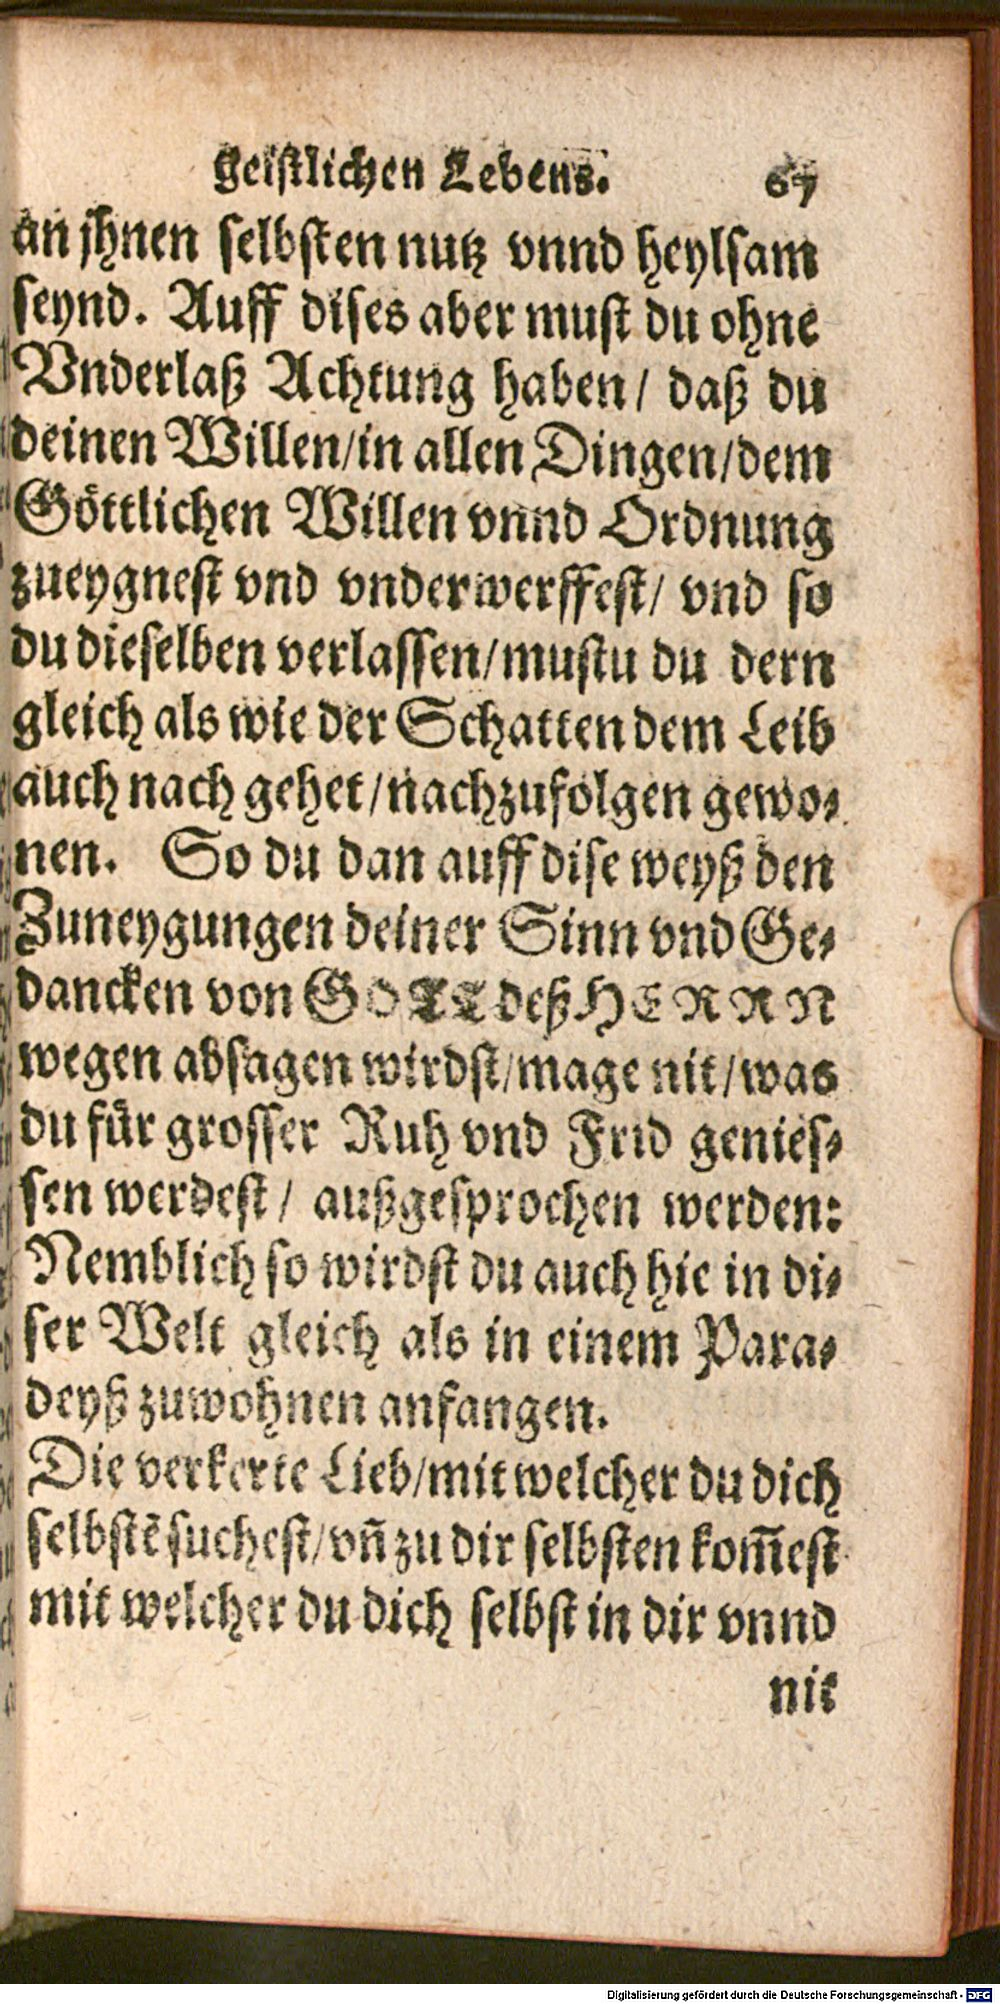 geistlichen Lebens. 67
an jhnen selbsten nutz vnnd heylsam
seynd. Auff dises aber must du ohne
Vnderlaß Achtung haben / daß du
deinen Willen / in allen Dingen / dem
Göttlichen Willen vnnd Ordnung
zueygnest vnd vnderwerffest / vnd so
du dieselben verlassen / mustu du dern
gleich als wie der Schatten dem Leib
auch nach gehet / nachzufolgen gewo-
nen. So du dan auff dise weyß den
Zuneygungen deiner Sinn vnd Ge-
dancken von GOTT deß HERRN
wegen absagen wirdst / mage nit / was
du für grosser Ruh vnd Frid genies-
sen werdest / außgesprochen werden:
Nemblich so wirdst du auch hie in di-
ser Welt gleich als in einem Para-
deyß zuwohnen anfangen.
Die verkerte Lieb / mit welcher du dich
selbstē suchest / vñ zu dir selbsten kom̄est
mit welcher du dich selbst in dir vnnd
nit
Digitalisierung gefördert durch die Deutsche Forschungsgemeinschaft - DFG